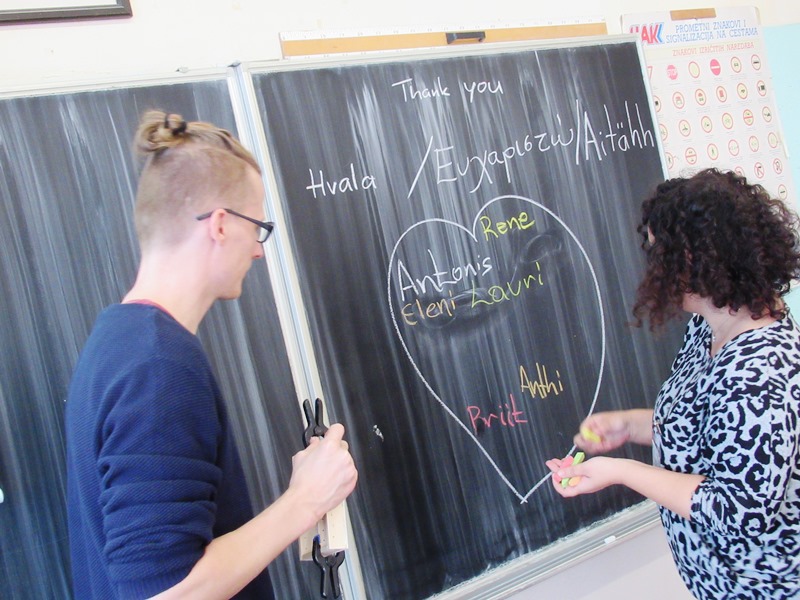 Thank you
Hvala /Ευχαριστώ/Aitähh
Rene
Antonis
Eleni Lauri
Anthi
Briit
HAK PROMETNI ZNAKOVI I
SIGNALIZACIJA NA CESTAMA
ZNAKOVI IZRIČITIH NAREDABA